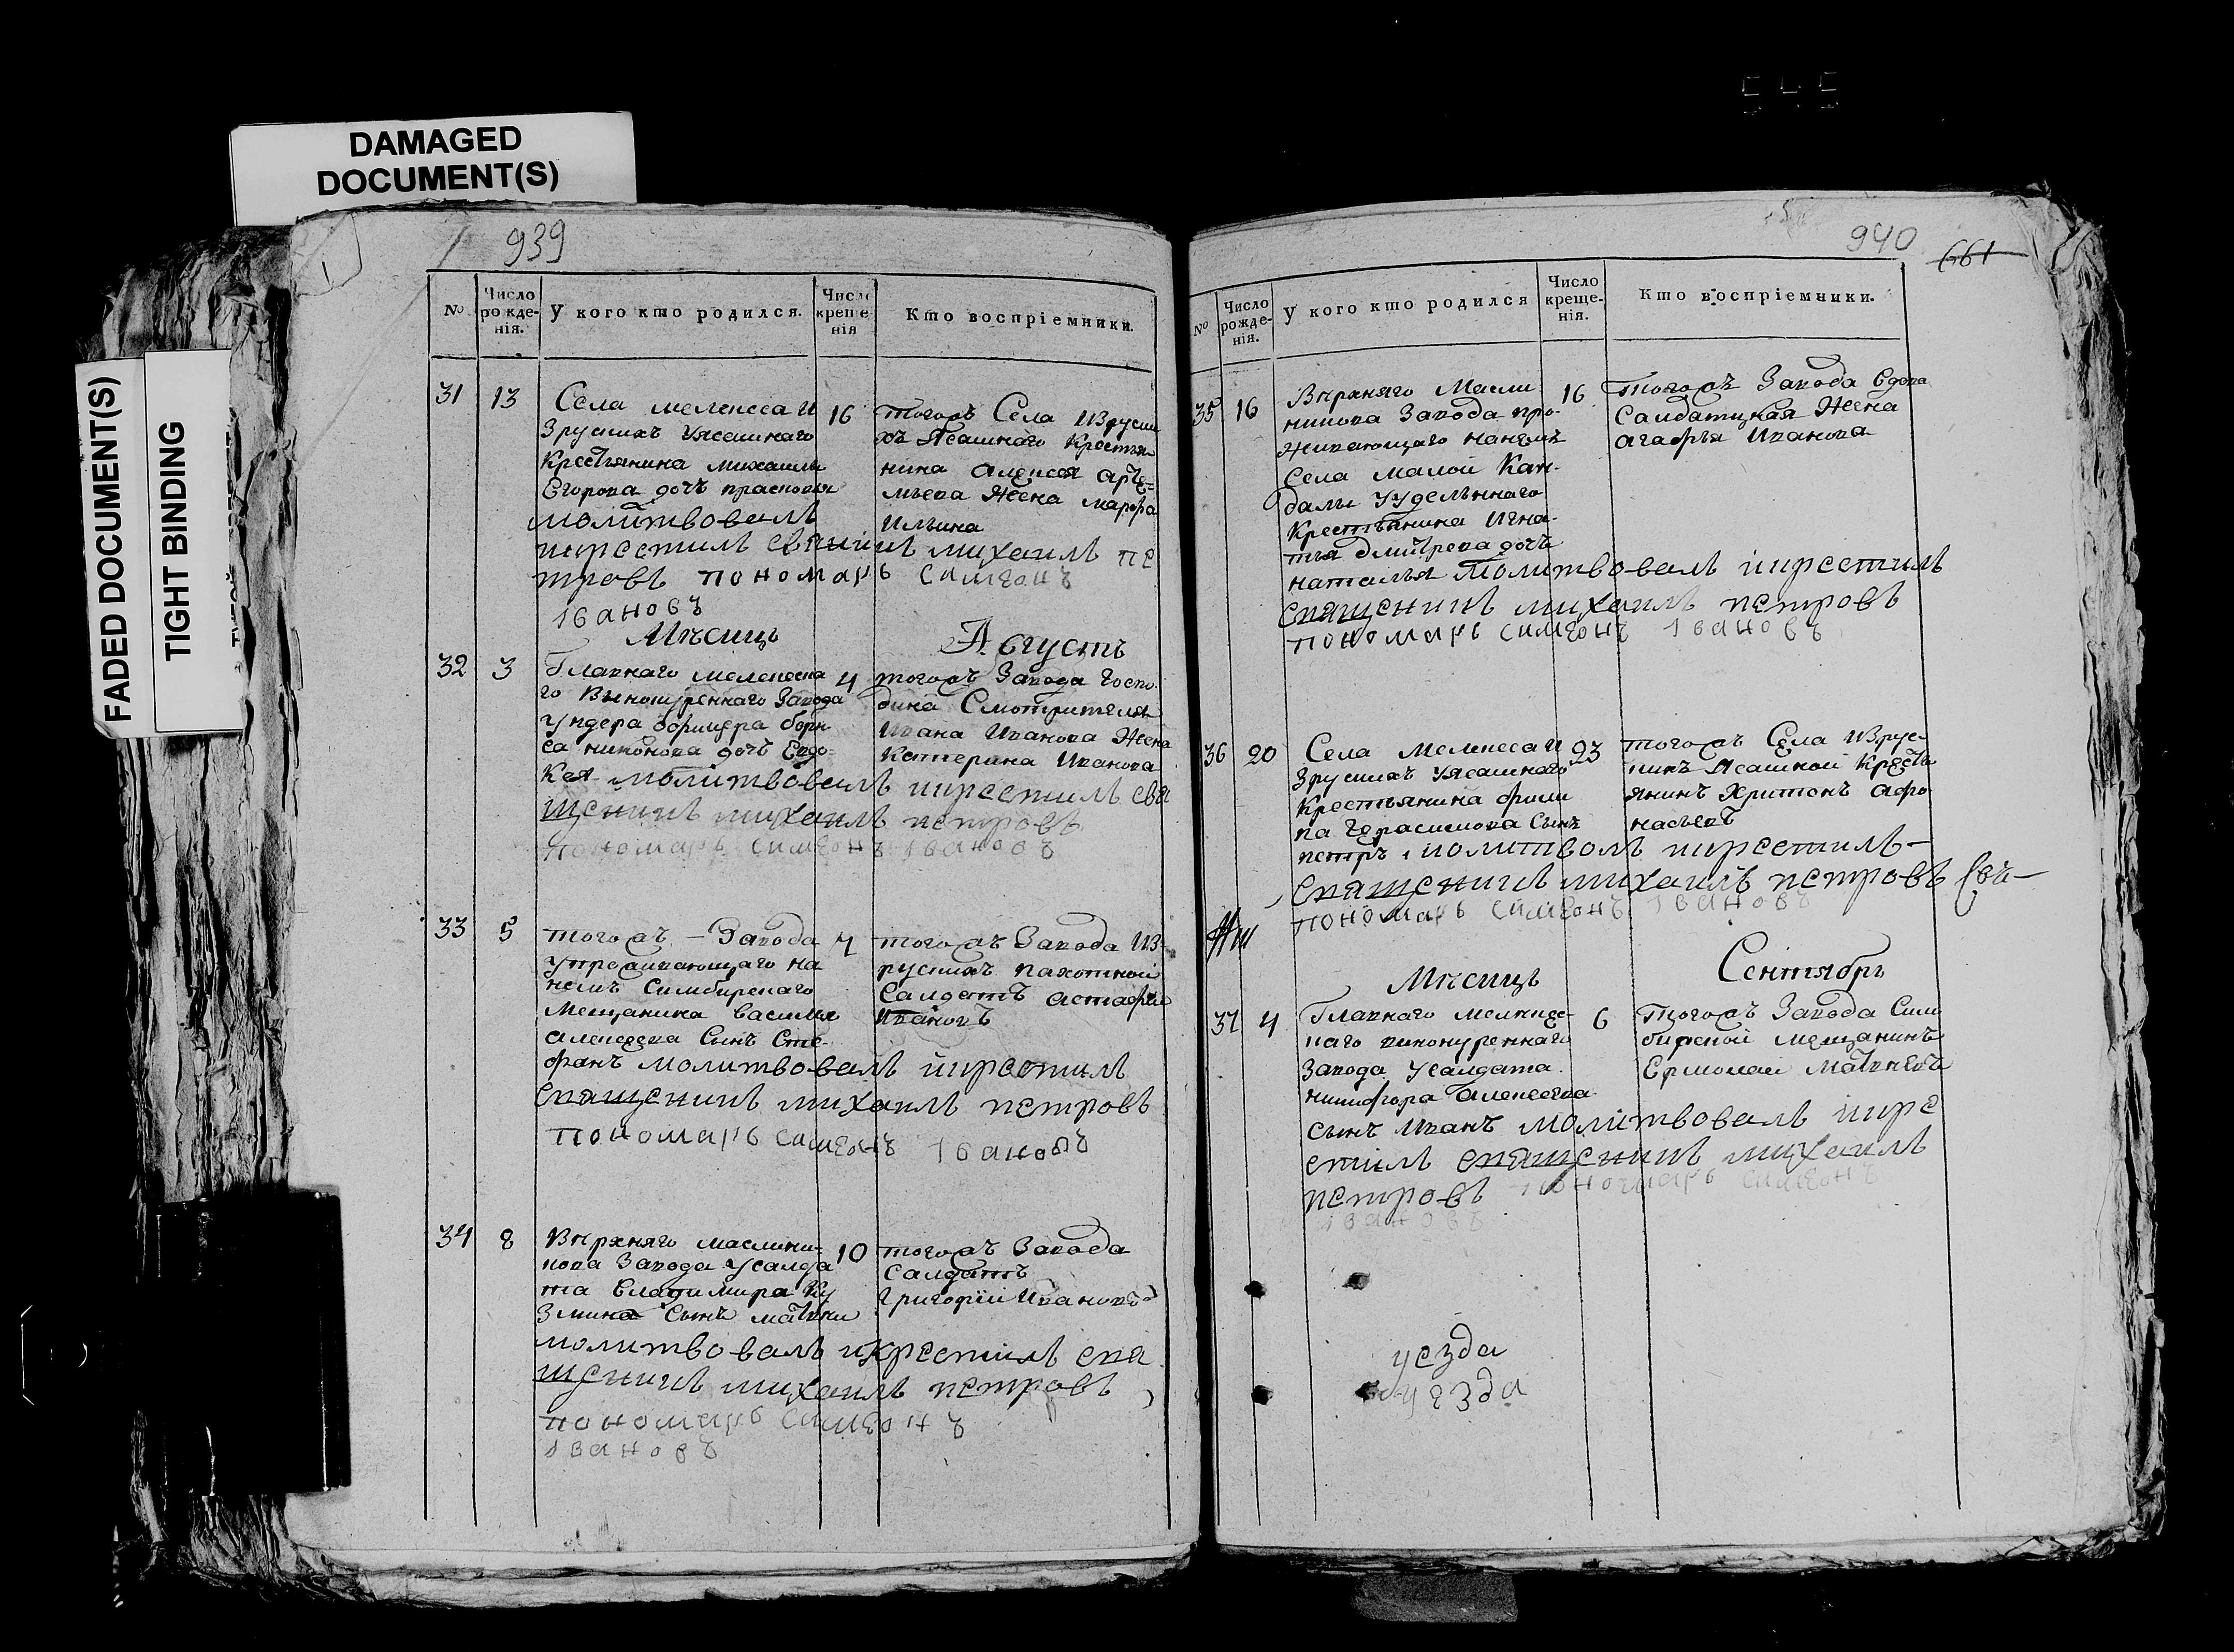 545
DAMAGED
DOCUMENT(S)
FADED DOCUMENT(S)
TIGHT BINDING
939
№
Число рожде-нія.
У кого кто родился.
Число креще-нія
Кто воспріемники.
31 13
Села мелекеса И
зрускихъ Уясашнаго
Крестьянина михаила
Егорова дочь прасковья
молитвовалъ
икрестилъ свящникъ михаилъ пе
тровъ пономарь симеонъ
Iвановъ
16
тогожъ Села Изруски
хъ Ясашнаго Крестья
нина алексея арте-
мьева Жена марфа
Ильина
Месицъ Августъ
32 3
Главнаго мелекеска
го Винокуреннаго Завода
ундера офицера бори
са никонова дочь Евдо-
кея молитвовалъ икрестилъ свя
щеникъ михаилъ петровъ
пономарь симеонъ Iвановъ
4
тогожъ Завода Госпо
дина Смотрителя
Ивана Иванова Жена
Катерина Иванова
33 5
тогожъ - Завода
упроживающаго на
немъ Симбирскаго
Мещанина василья
алексеева Сынъ Сте-
фанъ молитвовалъ икрестилъ
священикъ михаилъ петровъ
пономарь симеонъ Iвановъ
7
тогожъ Завода Из-
рускихъ пахотной
Салдатъ астафей
Ивановъ
34 8
Верхняго маслени-
кова Завода Усалда
та Владимира Ку
змина Сынъ матвеи
молитвовалъ икрестилъ свя
щеникъ михаилъ петровъ
пономарь симеонъ
Iвановъ
10
тогожъ Завода
Салдатъ
Григорiй Ивановъ
940
661
№
Число рожде-нія.
У кого кто родился
Число креще-нія.
Кто воспріемники.
35 16
Верхняго Масле
никова Завода про-
живающаго нанемъ
Села малой Кан-
далы Уудельнаго
Крестьянина Игна-
тья дмитрева дочь
наталья молитвовалъ икрестилъ
священикъ михаилъ петровъ
пономарь симеонъ Iвановъ
16
тогожъ Завода вдова
Салдатцкая Жена
агафья Иванова
36 20
Села Мелекеса И
зрускихъ Уясашнаго
Крестьянина фили
па Герасимова Сынъ
петръ молитвовалъ икрестилъ
священикъ михаилъ петровъ
пономарь симеонъ Iвановъ
23
тогожъ Села Изрус-
кихъ Ясашной Кресть
янинъ Харитонъ афо
насьевъ
Месицъ Сентябрь
37 4
Главнаго мелекес-
каго винокуреннаго
Завода Усалдата
никифора алексеева
сынъ Иванъ молитвовалъ икре
стилъ священикъ михаилъ
петровъ пономарь симеонъ
Iвановъ
6
тогожъ Завода Сим
бирской мещанинъ
Ермолаи Матвеевъ
уезда
уезда